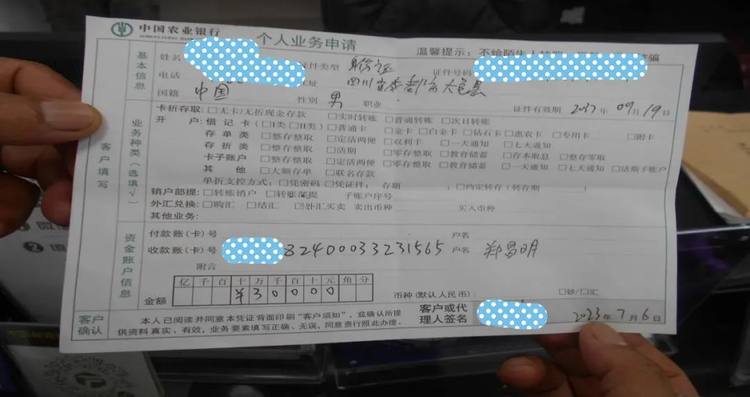 中国农业银行 个人业务申请 温馨提示：不给陌生人
姓名 证件类型 身份证 证件号码
电话
国籍 中国 性别 男 职业 证件有效期 2037年09月19日
基本信息
业务种类（选填√）
客户填写
卡折存取：□无卡/无折现金存款 □实时转账 □普通转账 □次日转账
开户：借记卡（□I类□II类）□普通卡 □金卡□白金卡□钻石卡□惠农卡 □专用卡 □附卡
存单类 □整存整取 □定活两便 □双利卡 □一天通知 □七天通知
存折类 □活期 □零存整取 □教育储蓄 □存本取息 □整存零取
卡子账户 □整存整取 □定活两便 □零存整取 □教育储蓄 □一天通知 □七天通知 □活期子账户
其他 □大额存单 □联名存款
单折支控方式：□凭密码□凭证件： 存期 □约定转存（转存期 ）
销户部提：□转账销户 □转账部提 子账户序号
外汇兑换：□购汇 □结汇 □外汇买卖 卖出币种 买入币种
其他业务：
资金账户信息
付款账（卡）号 户名
收款账（卡）号 82400033231565 户名 郑昌明
附言
亿千百十万千百十元角分
金额 ¥30000 币种（默认人民币） □钞/□汇
客户确认
本人已阅读并同意本凭证背面印刷“客户须知”，并确认所提
供资料真实、有效，业务要素填写正确、无误，同意贵行照此办理。
客户或代
理人签名
2023年7月6日